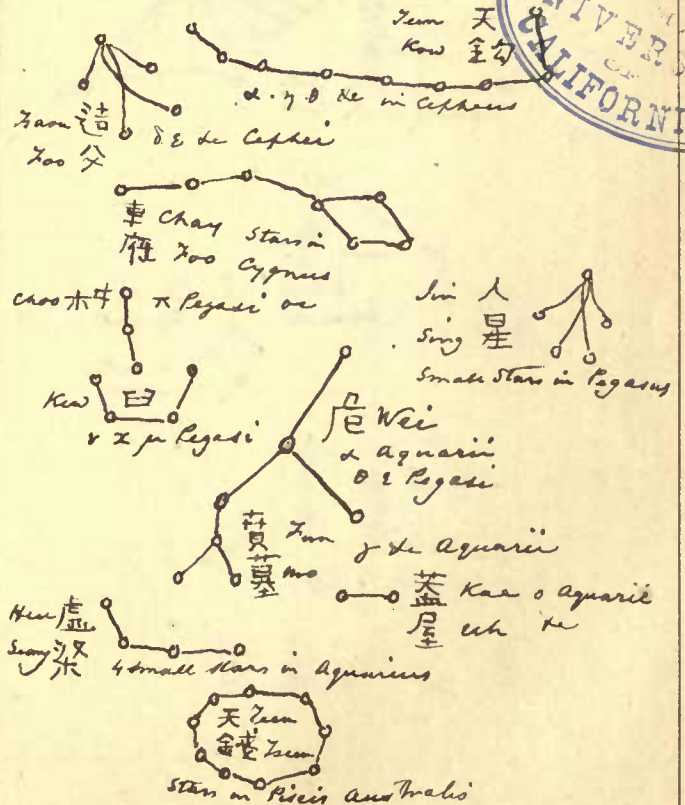 Teen 天
Kow 鈎
UNIVERS
OF
CALIFORNI
α. η θ &c in Cepheus
Tsaou 造
Foo 父
δ. ε &c Cephei
車 Chay Stars in
府 Foo Cygnus
Choo 杵 π Pegasi &c
Jin 人
Sing 星
Small Stars in Pegasus
Kew 臼
γ χ μ Pegasi
危 Wei
α Aquarii
θ ε Pegasi
墳 Fun γ &c Aquarii
墓 mo
蓋 Kae ο Aquarii
屋 uh &c
Heu 虛
梁 4 small stars in Aquarius
天 Teen
錢 Tseen
Stars in Piscis Australis